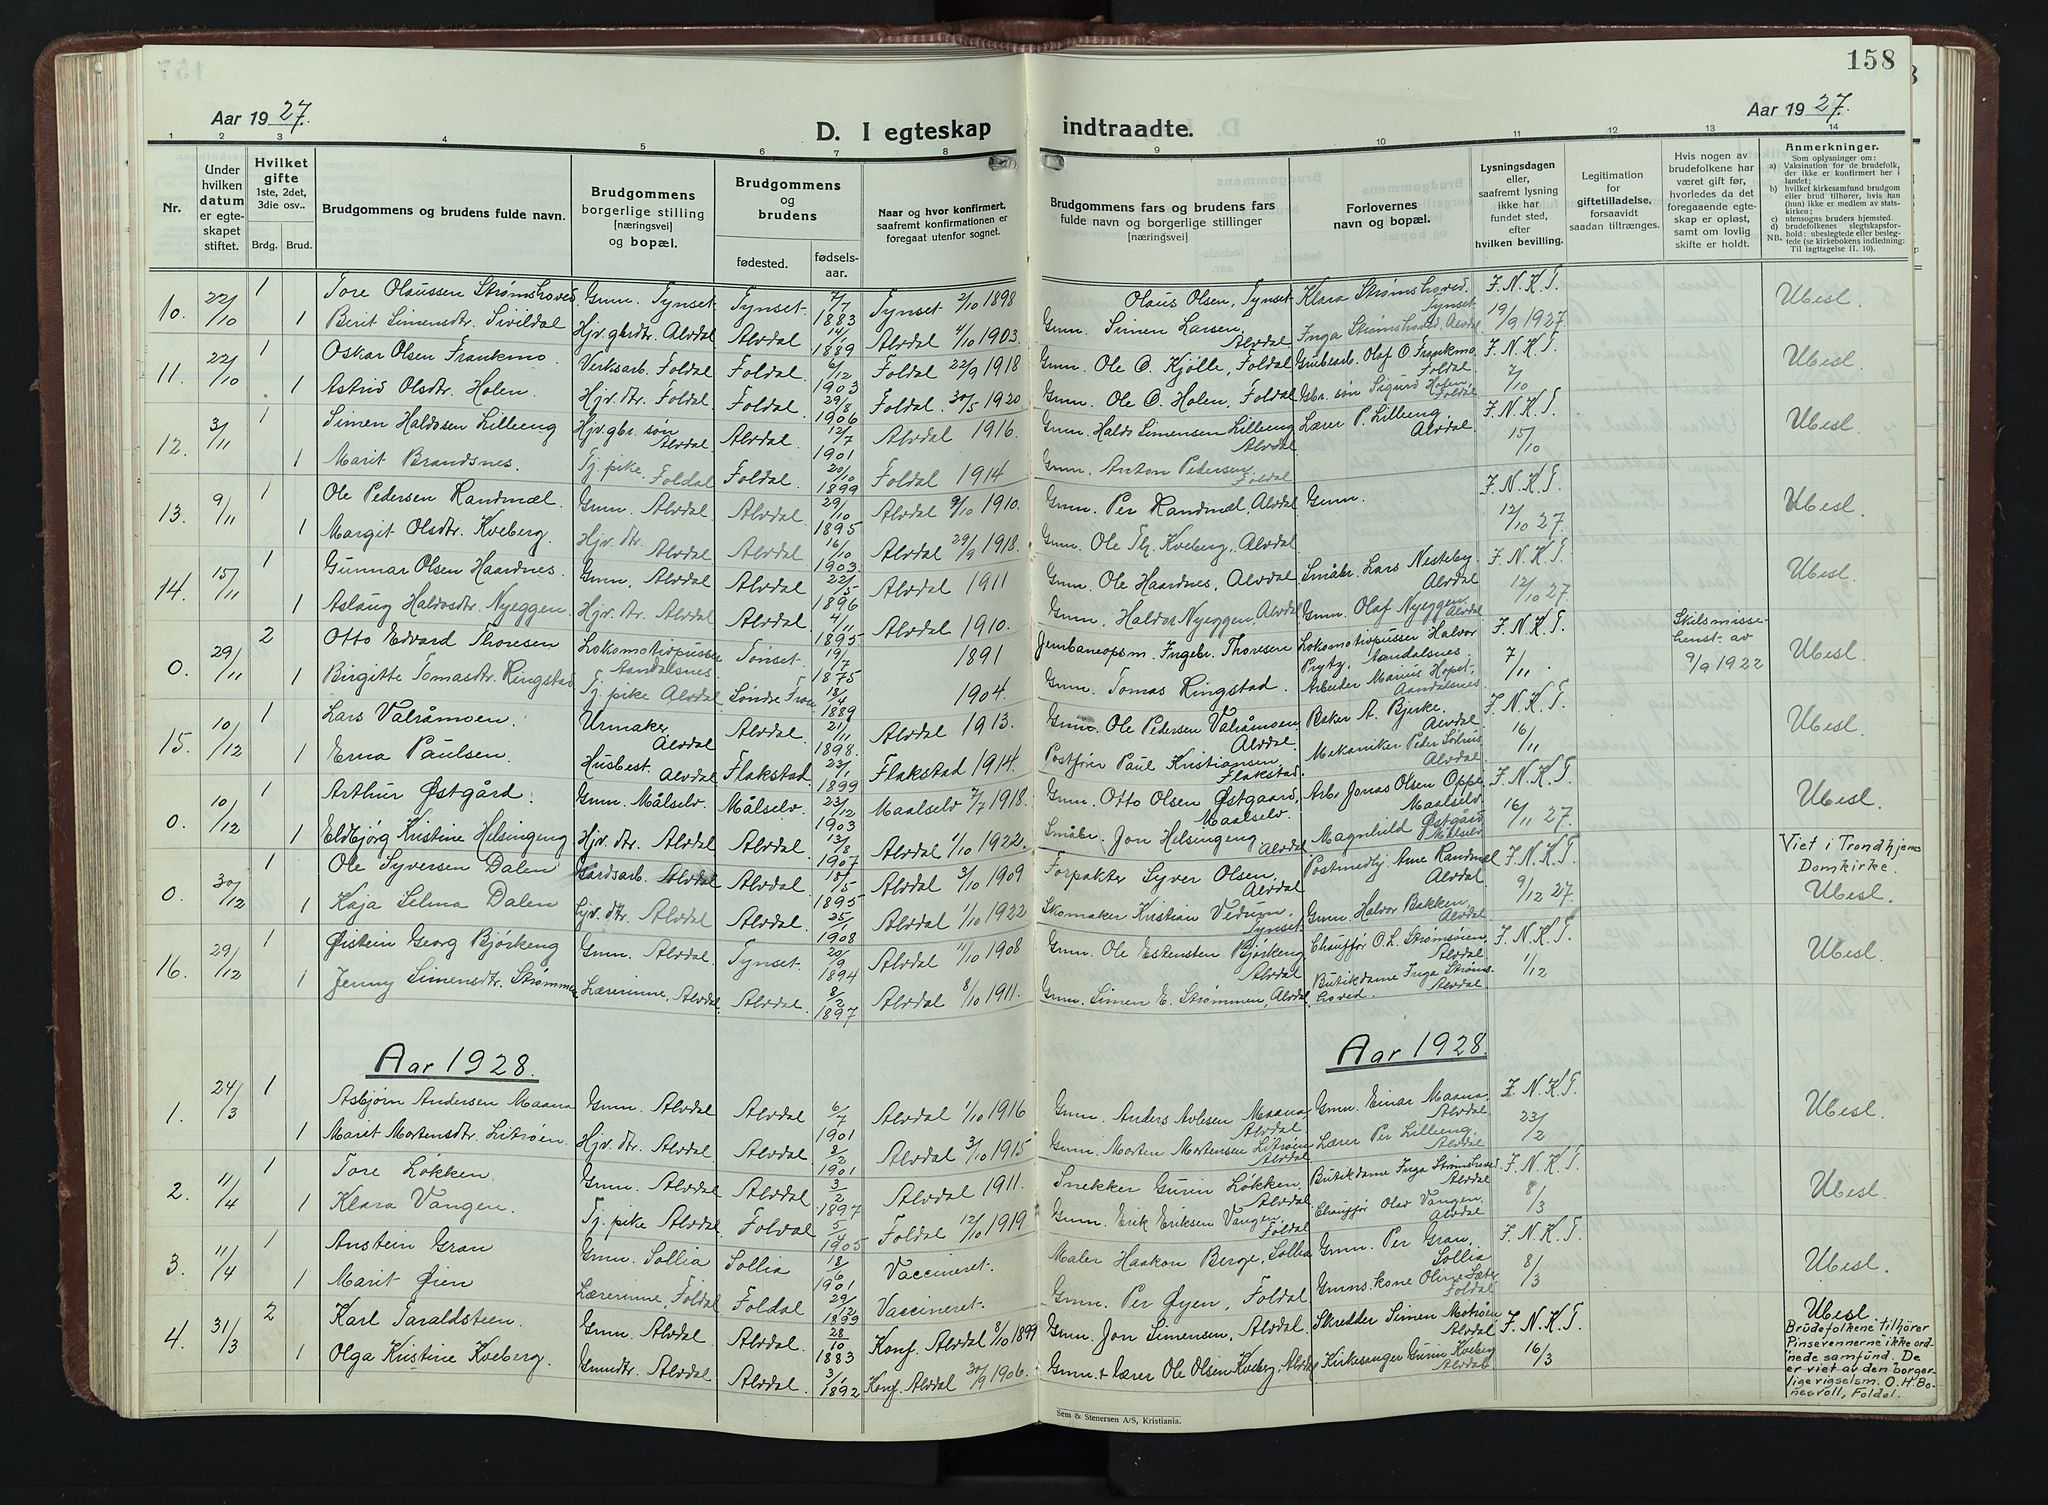 158
Aar 1927.
D. I egteskap indtraadte.
Aar 1927.
1 2 3 4 5 6 7 8 9 10 11 12 13 14
Nr.
Under hvilken datum er egteskapet stiftet.
Hvilket gifte 1ste, 2det, 3die osv..
Brdg. Brud.
Brudgommens og brudens fulde navn.
Brudgommens borgerlige stilling [næringsvei] og bopæl.
Brudgommens og brudens
fødested. fødselsaar.
Naar og hvor konfirmert, saafremt konfirmationen er foregaat utenfor sognet.
Brudgommens fars og brudens fars fulde navn og borgerlige stillinger [næringsvei]
Forlovernes navn og bopæl.
Lysningsdagen eller, saafremt lysning ikke har fundet sted, efter hvilken bevilling.
Legitimation for giftetilladelse, forsaavidt saadan tiltrænges.
Hvis nogen av brudefolkene har været gift før, hvorledes da det foregaaende egteskap er opløst, samt om lovlig skifte er holdt.
Anmerkninger.
Som oplysninger om:
a) Vaksination for de brudefolk, der ikke er konfirmert her i landet;
b) hvilket kirkesamfund brudgom eller brud tilhører, hvis han (hun) ikke er medlem av statskirken;
c) utensogns bruders hjemsted.
d) brudefolkenes slegtskapsforhold: ubeslegtede eller beslegtede (se kirkebokens indledning:
NB. Til iagttagelse II. 10).
10. 22/10 1 Tore Olaussen Strømshoved Gmn. Tynset Tynset 7/7 1883 Tynset 2/10 1898 Olaus Olsen, Tynset Klara Strømshoved. Tynset F.N.K.T. 19/9 1927 Ubesl.
1 Berit Simensdtr. Sivildal Hjv. gbrdtr. Alvdal Alvdal 14/1 1889 Alvdal 4/10 1903. Gmn. Simen Larsen, Alvdal Inga Strømshoved, Alvdal
11. 22/10 1 Oskar Olsen Frankmo Verksarb. Foldal Foldal 6/12 1903 Foldal 22/9 1918 Gmn. Ole O. Kjölle, Foldal Grubearb. Olaf O. Frankmo, Foldal F.N.K.T. 7/10 Ubesl.
1 Astrid Olsdtr. Holen. Hjv. dtr. Foldal Foldal 29/8 1906 Foldal 30/5 1920 Gmn. Ole O. Holen, Foldal Gbr. søn Sigurd Holen, Foldal
12. 3/11 1 Simen Haldosen Lilleeng Hjv. gbr. søn Alvdal Alvdal. 12/7 1901 Alvdal 1916. Gmn. Haldo Simensen Lilleeng Alvdal Lærer P. Lilleeng, Alvdal F.N.K.T. 15/10 Ubesl.
1 Marit Brandsnes. Tj. pike Foldal Foldal. 20/10 1899 Foldal 1914 Gmn. Anton Pedersen Foldal
13. 9/11 1 Ole Pedersen Randmæl Gmn. Alvdal Alvdal 29/10 1895 Alvdal 9/10 1910. Gmn. Per Randmæl, Alvdal Gmn. F.N.K.T. 12/10 27. Ubesl.
1 Margit Olsdtr. Kveberg. Hjv. dtr. Alvdal Alvdal 16/10 1903 Alvdal 29/9 1918. Gmn. Ole Th. Kveberg, Alvdal
14. 15/11 1 Gunnar Olsen Haardnes. Gmn. Alvdal Alvdal 22/5 1896 Alvdal 1911 Gmn. Ole Haardnes, Alvdal Småbr. Lars Nesteby Alvdal F.N.K.T. 12/10 27. Ubesl.
1 Aslaug Haldosdtr. Nyeggen Hjv. dtr. Alvdal Alvdal 4/11 1895 Alvdal 1910. Gmn. Haldor Nyeggen, Alvdal Gmn. Olaf Nyeggen Alvdal
0 29/11 2 Otto Edvard Thoresen Lokomotivpusser Aandalsnes Tønset. 19/7 1875 1891 Jernbaneopsm. Ingebr. Thoresen Lokomotivpusser Halvor Pryty, Aandalsnes. F.N.K.T. 7/11. Skilsmissebenst. av 9/9 1922 Ubesl.
1 Birgitte Tomasdtr. Ringstad Tj. pike Alvdal Søndre Fron 18/4 1889 1904. Gmn. Tomas Ringstad. Arbeider Marius Hopet, Aandalsnes
15. 10/12 1 Lars Valråmoen. Urmaker Alvdal Alvdal. 21/11 1898. Alvdal 1913. Gmn. Ole Pedersen Valråmoen, Alvdal. Baker A. Bjerke. Alvdal F.N.K.T. 16/11 Ubesl.
1 Erna Paulsen. Husbest. Alvdal Flakstad 23/1 1899 Flakstad 1914. Postfører Paul Kristiansen, Flakstad. Mekaniker Peder Alvdal
0. 10/12 1 Arthur Østgård. Gmn. Målselv. Målselv 23/12 1903 Maalselv 7/7 1918. Gmn. Otto Olsen Østgaard, Maalselv Arb. Jonas Olsen Oppe, Maalselv F.N.K.T. 16/11 27. Ubesl.
1 Eldbjørg Kristine Helsingeng Hjv. dtr. Alvdal Alvdal 13/8 1907 Alvdal 1/10 1922. Småbr. Jon Helsingeng Alvdal Magnhild Østgård, Målselv
0. 30/12 1 Ole Syversen Dalen Gårdsarb. Alvdal Alvdal 10/5 1895 Alvdal 3/10 1909 Forpakter Syver Olsen, Alvdal Postmedhj. Arne Randmæl Alvdal F.N.K.T. 9/12 27. Viet i Trondhjems Domkirke. Ubesl.
1 Kaja Selma Dalen Hjv. dtr. Alvdal Alvdal. 25/1 1908 Alvdal 1/10 1922 Skomaker Kristian Vedum, Tynset. Gmn. Haldor Bakken, Alvdal
16. 29/12 1 Øistein Georg Bjørkeng Gmn. Alvdal. Tynset. 20/9 1894 Alvdal 11/10 1908 Gmn. Ole Estensten Bjørkeng Alvdal Chauffør O. L. Strømsøien, Alvdal F.N.K.T. 1/12 Ubesl.
1 Jenny Simensdtr. Strømmen Lærerinne, Alvdal Alvdal. 8/2 1897 Alvdal 8/10 1911. Gmn. Simen E. Strømmen, Alvdal Butikdame Inga Strømshoved. Alvdal
Aar 1928. Aar 1928.
1. 24/3 1 Asbjørn Andersen Maana Gmn. Alvdal Alvdal 6/7 1901 Alvdal 1/10 1916 Gmn. Anders Avlesen Maana, Alvdal Gmn. Einar Maana, Alvdal F.N.K.T. 23/2 Ubesl.
1 Marit Mortensdtr. Litrøen. Hjv. dtr. Alvdal. Alvdal. 8/2 1901 Alvdal 3/10 1915 Gmn. Morten Mortensen Litrøen Alvdal Lærer Per Lilleeng, Alvdal
2. 11/4 1 Tore Løkken. Gmn. Alvdal Alvdal 3/2 1897 Alvdal 1911. Snekker Gurin Løkken, Alvdal Butikdame Inga Strømshoved Alvdal F.N.K.T. 8/3 Ubesl.
1 Klara Vangen. Tj. pike Alvdal. Foldal 5/4 1905 Foldal 12/10 1919. Gmn. Erik Eriksen Vangen. Foldal Chauffør Olav Vangen, Alvdal
3. 11/4 1 Anstein Gran Gmn. Sollia Sollia 18/6 1901 Vaccineret. Maler Haakon Berge, Sollia Gmn. Per Gran, Sollia F.N.K.T. 8/3 Ubesl.
1 Marit Øien Lærerinne, Foldal Foldal 29/12 1899 Vaccineret. Gmn. Per Øyen, Foldal Gmns. kone Oline Sæter Foldal
4. 31/3 2 Karl Taraldsteen. Gmn. Alvdal Alvdal. 28/10 1883 Konf. Alvdal 8/10 1899 Gmn. Jon Simensen, Alvdal. Skredder Simen Motrøen Alvdal F.N.K.T. 16/3 Ubesl.
Brudefolkene tilhører "Pinsevennerne" ikke ordnede samfund. De er viet av den borgerlige vigselsm. O. H. Bonesvoll, Foldal.
1 Olga Kristine Kveberg. Gmndtr. Alvdal Alvdal. 3/1 1892 Konf. Alvdal 30/9 1906. Gmn. + lærer Ole Olsen Kveberg, Alvdal Kirkesanger Gunn Kveberg Alvdal
Sem & Stenersen A/S, Kristiania.